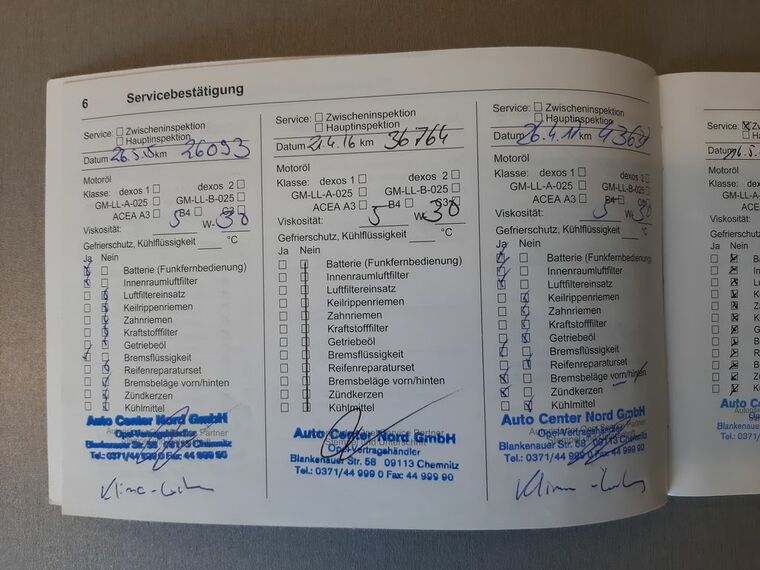 6 Servicebestätigung
Service: □ Zwischeninspektion
□ Hauptinspektion
Datum 26.5.15 km 26093
Motoröl
Klasse: dexos 1 □ dexos 2 □
GM-LL-A-025 □ GM-LL-B-025 □
ACEA A3 □ B4 □ C3 □
Viskosität: 5 W- 30
Gefrierschutz, Kühlflüssigkeit ____ °C
Ja Nein
Batterie (Funkfernbedienung)
Innenraumluftfilter
Luftfiltereinsatz
Keilrippenriemen
Zahnriemen
Kraftstofffilter
Getriebeöl
Bremsflüssigkeit
Reifenreparaturset
Bremsbeläge vorn/hinten
Zündkerzen
Kühlmittel
Auto Center Nord GmbH
Opel-Vertragshändler
Blankenauer Str. 58 09113 Chemnitz
Tel.: 0371/44 999 0 Fax: 44 999 90
Service: □ Zwischeninspektion
□ Hauptinspektion
Datum 21.4.16 km 36764
Motoröl
Klasse: dexos 1 □ dexos 2 □
GM-LL-A-025 □ GM-LL-B-025 □
ACEA A3 □ B4 □ C3 □
Viskosität: 5 W- 30
Gefrierschutz, Kühlflüssigkeit ____ °C
Ja Nein
Batterie (Funkfernbedienung)
Innenraumluftfilter
Luftfiltereinsatz
Keilrippenriemen
Zahnriemen
Kraftstofffilter
Getriebeöl
Bremsflüssigkeit
Reifenreparaturset
Bremsbeläge vorn/hinten
Zündkerzen
Kühlmittel
Auto Center Nord GmbH
Opel-Vertragshändler
Blankenauer Str. 58 09113 Chemnitz
Tel.: 0371/44 999 0 Fax: 44 999 90
Service: □ Zwischeninspektion
□ Hauptinspektion
Datum 26.4.17 km
Motoröl
Klasse: dexos 1 □ dexos 2 □
GM-LL-A-025 □ GM-LL-B-025 □
ACEA A3 □ B4 □
Viskosität: 5 W- 30
Gefrierschutz, Kühlflüssigkeit ____ °C
Ja Nein
Batterie (Funkfernbedienung)
Innenraumluftfilter
Luftfiltereinsatz
Keilrippenriemen
Zahnriemen
Kraftstofffilter
Getriebeöl
Bremsflüssigkeit
Reifenreparaturset
Bremsbeläge vorn/hinten
Zündkerzen
Kühlmittel
Auto Center Nord GmbH
Opel-Vertragshändler
Blankenauer Str. 58 09113 Chemnitz
Tel.: 0371/44 999 0 Fax: 44 999 90
Service:
Motoröl
Klasse:
Viskosität:
Gefrierschutz
Ja Nein